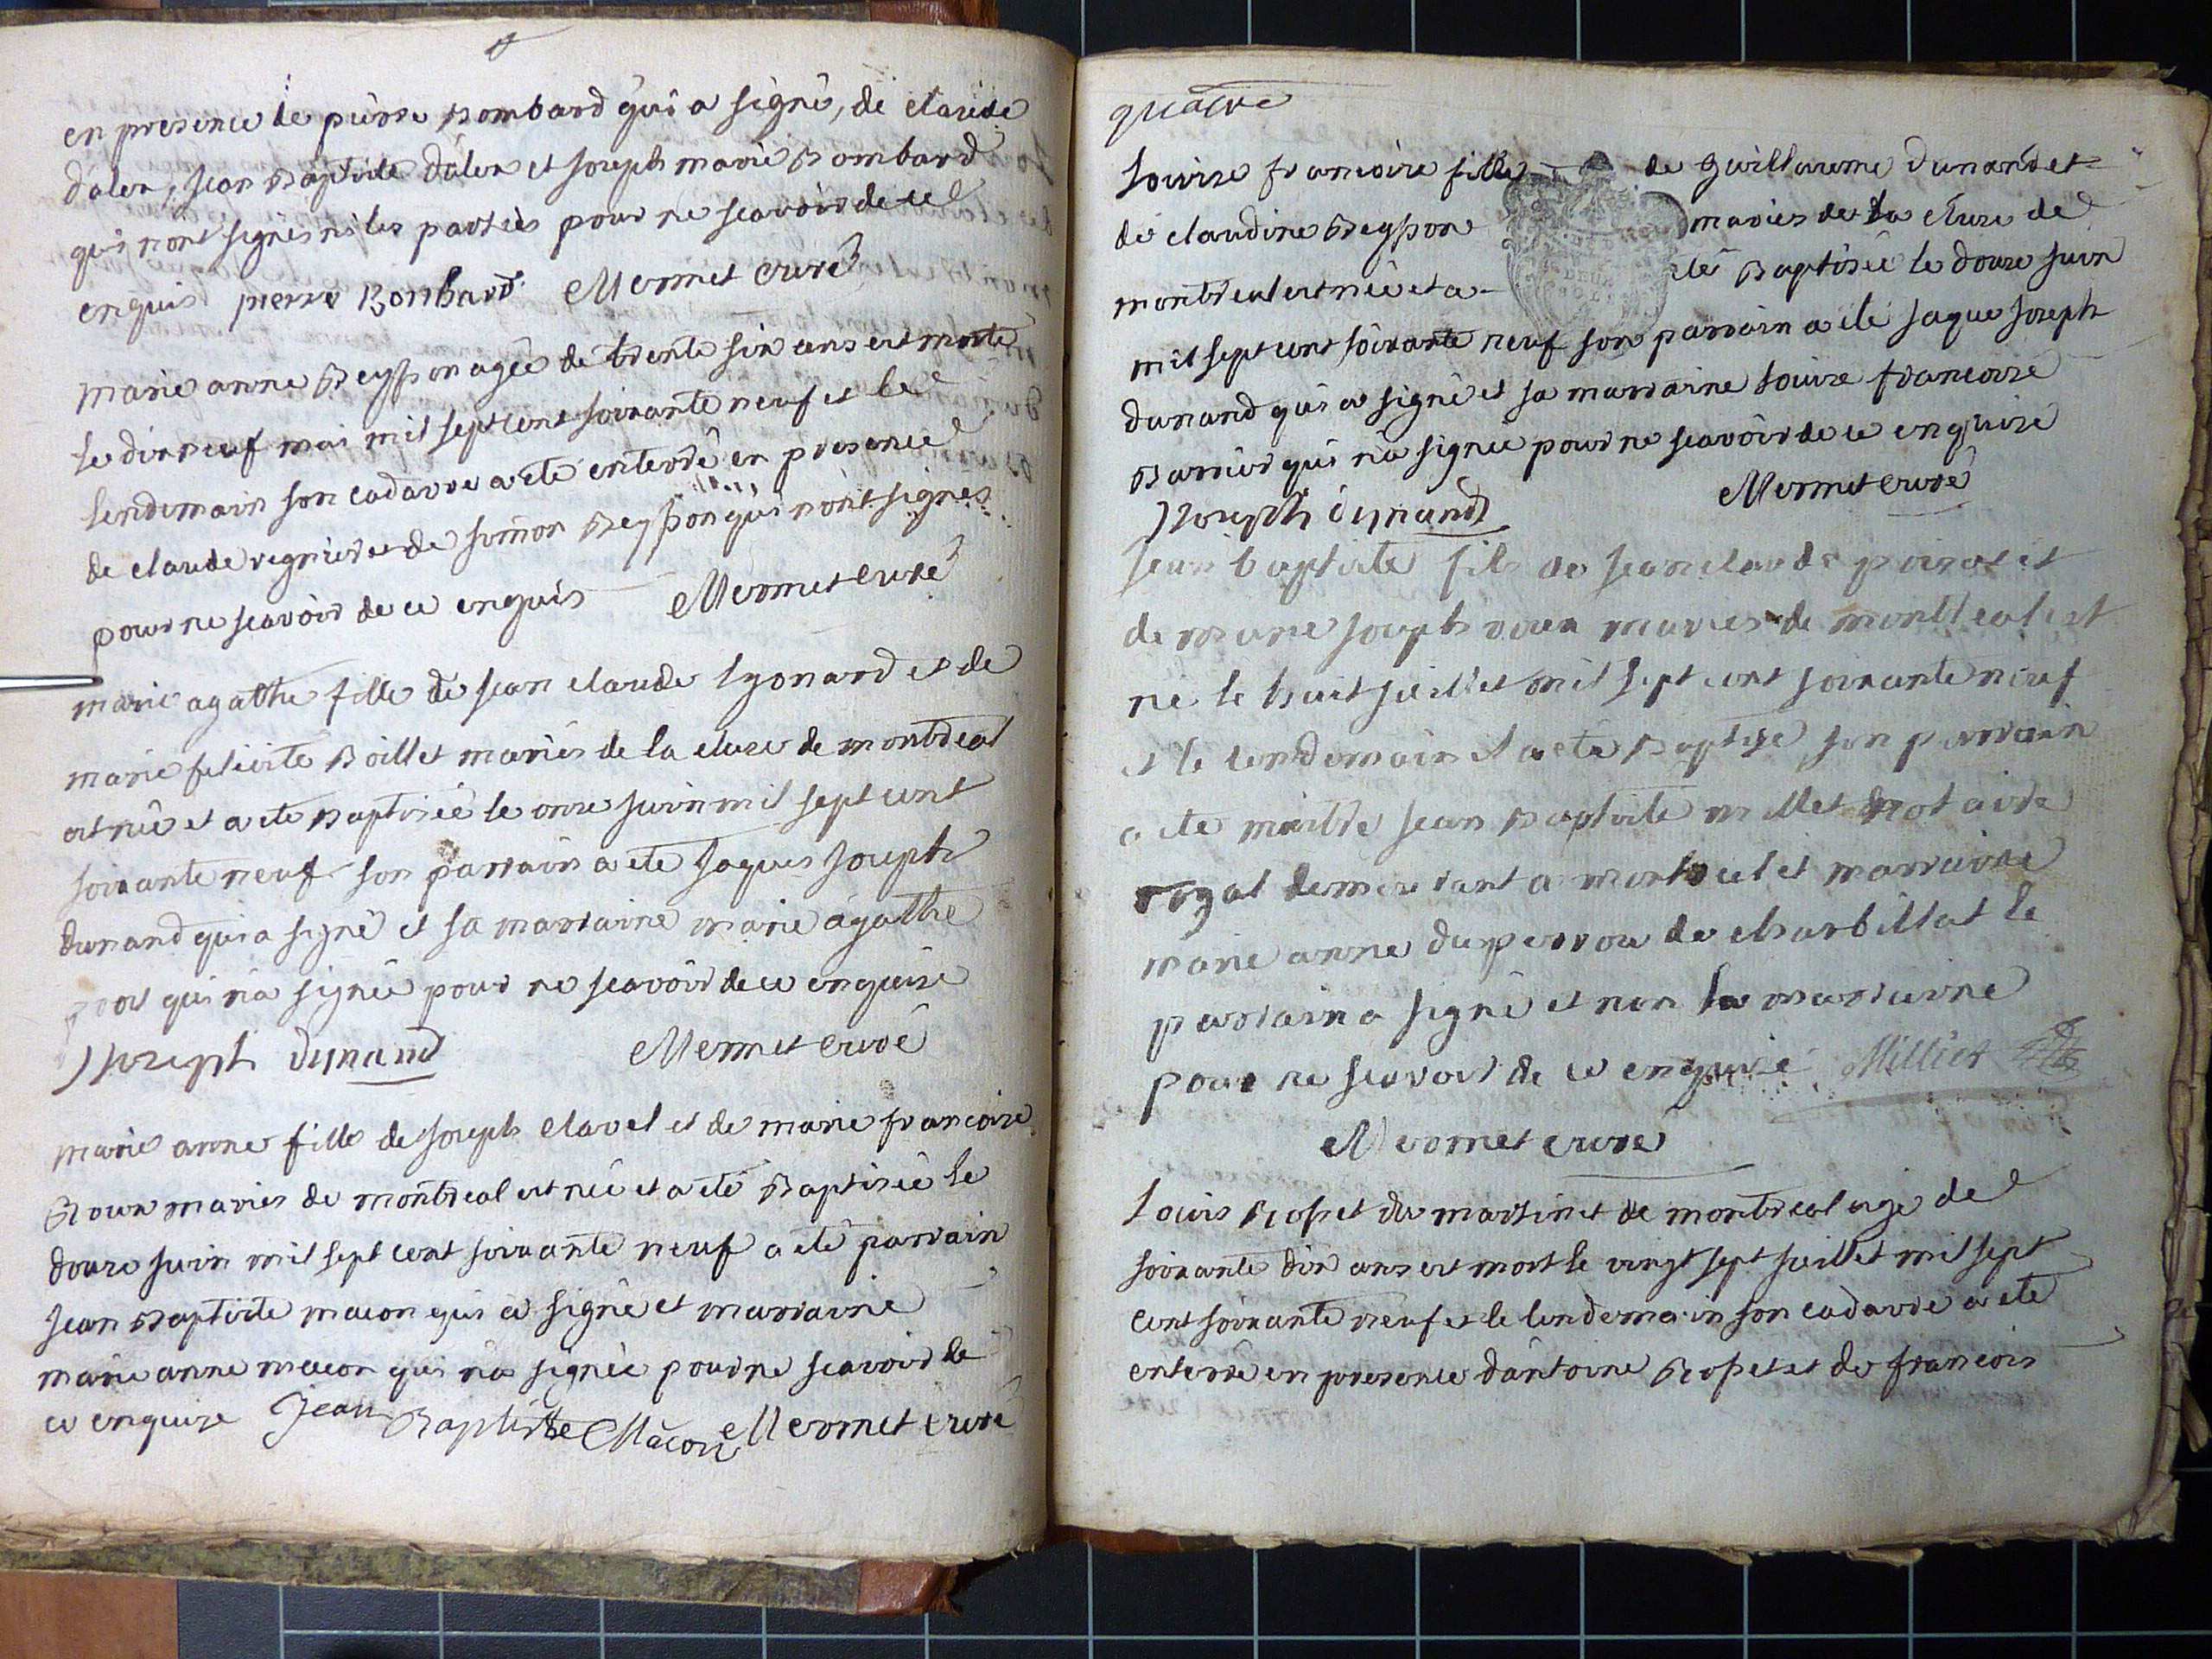 en presence de pierre Bombard qui a signé, de claude
dalex, jean Baptiste dalex et joseph marie Bombard
qui n'ont signés ni les parties pour ne scavoir de ce
enquis pierre Bonbard Mermet curé
marie anne Beysson agée de trente six ans est morte
le dix neuf mai mil sept cent soixante neuf et le
lendemain son cadavre a eté enterré en presence
de claude regnier et de simon Beysson qui n'ont signés
pour ne scavoir de ce enquis Mermet curé
marie agathe fille de jean claude lyonard et de
marie felicité Boillet mariés de la cluse de montreal
est née et a eté Baptisée le onze juin mil sept cent
soixante neuf son parrain a eté jaques joseph
dunand qui a signé et sa marraine marie agathe
qui n'a signée pour ne scavoir de ce enquise
Joseph dunand Mermet curé
marie anne fille de joseph clavel et de marie francoise
Roux mariés de montreal est née et a eté Baptisée le
douze juin mil sept cent soixante neuf a eté parrain
jean Baptiste macon qui a signé et marraine
marie anne macon qui n'a signée pour ne scavoir de
ce enquise Jean Baptiste Macon Mermet curé
quatre
Louise francoise fille de guillaume dunand et
de claudine Beysson mariés de la cluse de
montreal est née et a eté Baptisée le douze juin
mil sept cent soixante neuf son parrain a eté jaque joseph
dunand qui a signé et sa marraine Louise francoise
qui n'a signée pour ne scavoir de ce enquise
Joseph dunand Mermet curé
jean baptiste fils de jean claude poizat et
de marie joseph roux mariés de montreal est
né le huit juillet mil sept cent soixante neuf
et le lendemain il a eté Baptisé son parrain
a eté maitre jean Baptiste millet notaire
royal demeurant a montreal et marraine
marie anne duperrou de charbillat le
parrain a signé et non la marraine
pour ne scavoir de ce enquise Milliet
Mermet curé
Louis Rosset du martinet de montreal agé de
soixante dix ans est mort le vingt sept juillet mil sept
cent soixante neuf et le lendemain son cadavre a eté
enterré en presence d'antoine Rosset et de francois